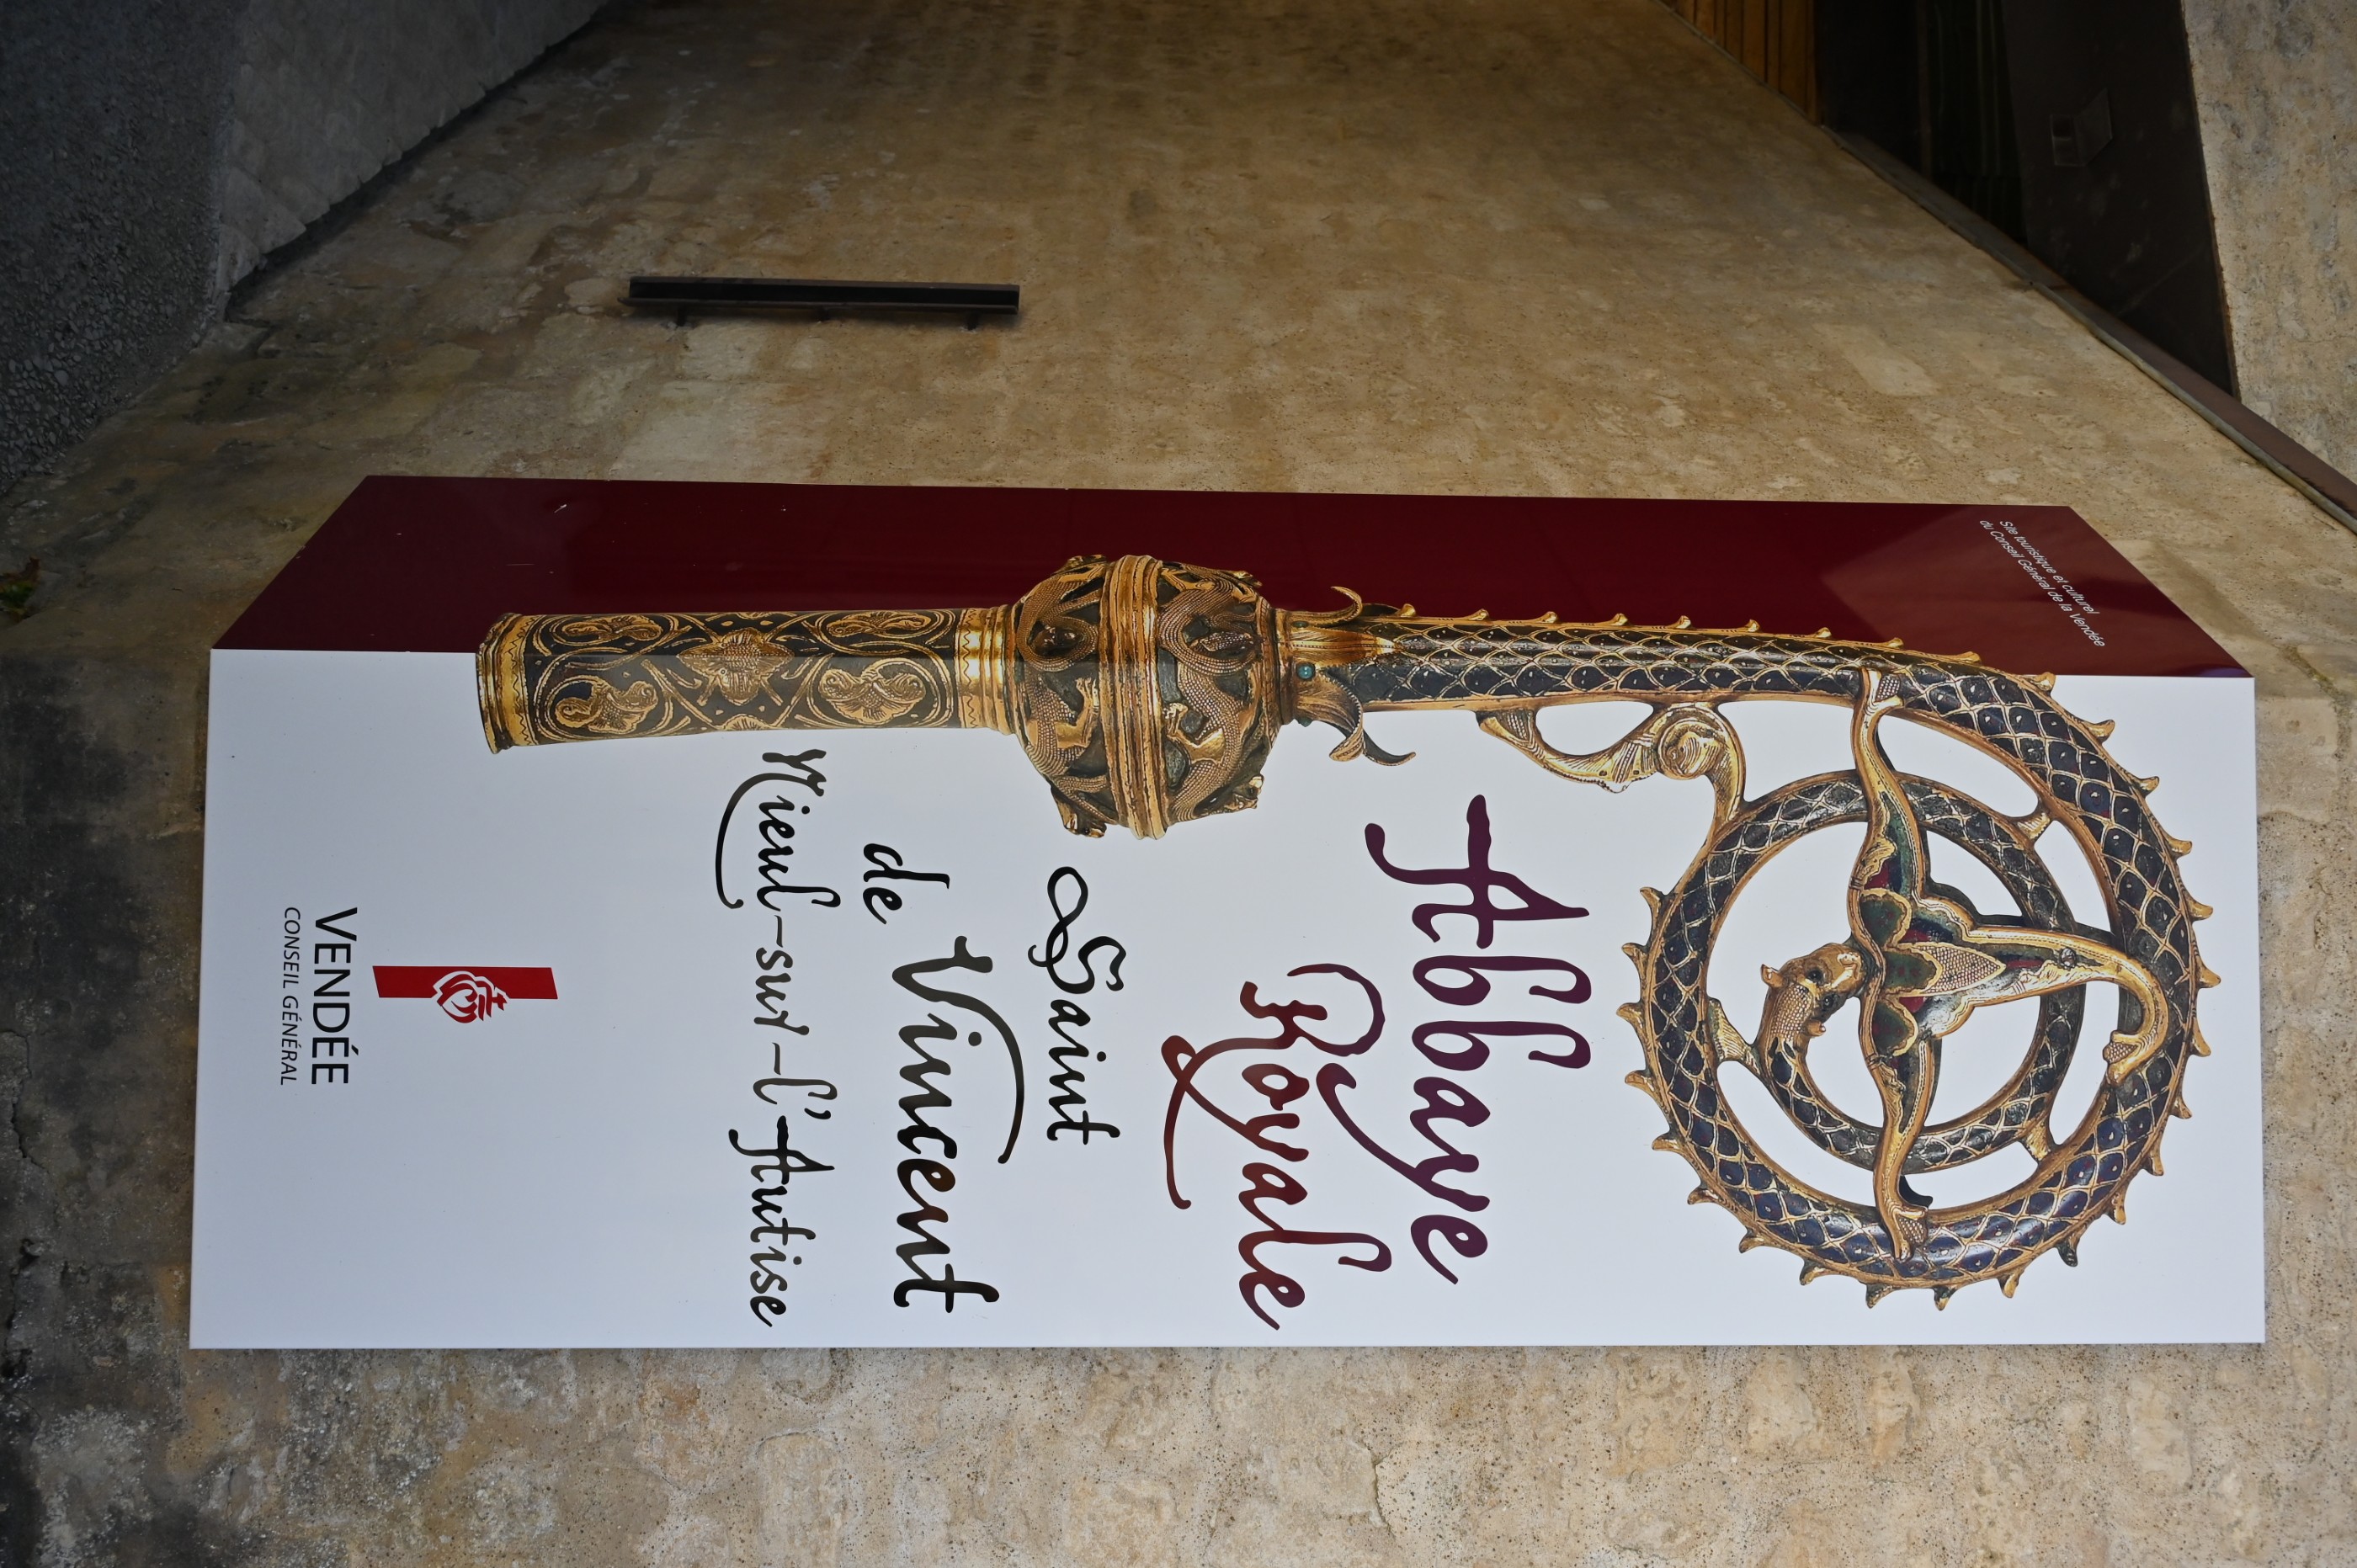 Site touristique et culturel
du Conseil Général de la Vendée
Abbaye
Royale
Saint
Vincent
de
Nieul-sur-l'Autise
VENDÉE
CONSEIL GÉNÉRAL